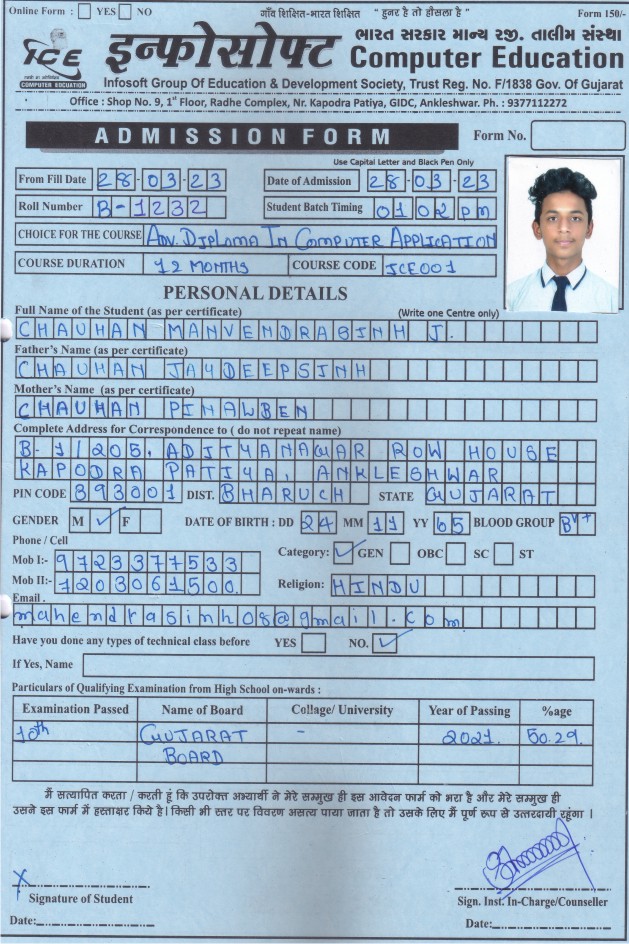 Online Form : YES NO गाँव शिक्षित-भारत शिक्षित " हुनर है तो हौसला है " Form 150/-
ICE इन्फोसोफ्ट ભારત સરકાર માન્ય રજી. તાલીમ સંસ્થા
COMPUTER EDUCATION Computer Education
Infosoft Group Of Education & Development Society, Trust Reg. No. F/1838 Gov. Of Gujarat
Office : Shop No. 9, 1st Floor, Radhe Complex, Nr. Kapodra Patiya, GIDC, Ankleshwar. Ph. : 9377112272
ADMISSION FORM Form No.
Use Capital Letter and Black Pen Only
From Fill Date 28-03-23 Date of Admission 28-03-23
Roll Number B-1232 Student Batch Timing 0102pm
CHOICE FOR THE COURSE Adv. Diploma In Computer Application
COURSE DURATION 12 MONTHS COURSE CODE ICE001
PERSONAL DETAILS
Full Name of the Student (as per certificate) (Write one Centre only)
CHAUHAN MANVENDRASINH J.
Father's Name (as per certificate)
CHAUHAN JAYDEEPSINH
Mother's Name (as per certificate)
CHAUHAN PINALBEN
Complete Address for Correspondence to ( do not repeat name)
B-1/205, ADITYANAGAR ROW HOUSE
KAPODRA PATIYA, ANKLESHWAR
PIN CODE 393001 DIST. BHARUCH STATE GUJARAT
GENDER M F DATE OF BIRTH : DD 24 MM 11 YY 05 BLOOD GROUP B+
Phone / Cell
Mob I:- 9723377533 Category: GEN OBC SC ST
Mob II:- 7203061500 Religion: HINDU
Email .
mahendrasinh08@gmail.com
Have you done any types of technical class before YES NO.
If Yes, Name
Particulars of Qualifying Examination from High School on-wards :
Examination Passed Name of Board Collage/ University Year of Passing %age
10th GUJARAT - 2021. 50.29.
BOARD
मैं सत्यापित करता / करती हूं कि उपरोक्त अभ्यार्थी ने मेरे सम्मुख ही इस आवेदन फार्म को भरा है और मेरे सम्मुख ही
उसने इस फार्म में हस्ताक्षर किये है। किसी भी स्तर पर विवरण असत्य पाया जाता है तो उसके लिए मैं पूर्ण रूप से उत्तरदायी रहूंगा ।
X
Signature of Student Sign. Inst. In-Charge/Counseller
Date: Date: